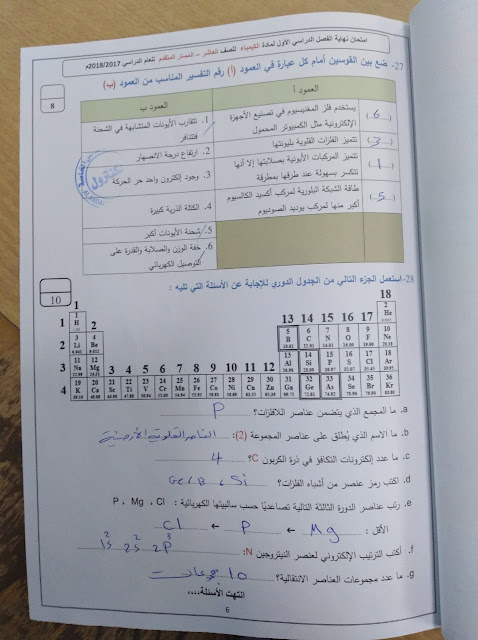 امتحان نهاية الفصل الدراسي الأول لمادة الكيمياء للصف العاشر – المسار المتقدم للعام الدراسي 2018/2017م
27- ضع بين القوسين أمام كل عبارة في العمود (أ) رقم التفسير المناسب من العمود (ب)
8
العمود أ
العمود ب
(6) يستخدم فلز المغنيسيوم في تصنيع الأجهزة
الإلكترونية مثل الكمبيوتر المحمول
1. تتقارب الأيونات المتشابهة في الشحنة
فتتنافر
(3) تتميز الفلزات القلوية بليونتها
2. ارتفاع درجة الانصهار
(1) تتميز المركبات الأيونية بصلابتها إلا أنها
تتكسر بسهولة عند طرقها بمطرقة
3. وجود إلكترون واحد حر الحركة
(5) طاقة الشبكة البلورية لمركب أكسيد الكالسيوم
أكبر منها لمركب يوديد الصوديوم
4. الكتلة الذرية كبيرة
5. شحنة الأيونات أكبر
6. خفة الوزن والصلابة والقدرة على
التوصيل الكهربائي
كنترول
28- استعمل الجزء التالي من الجدول الدوري للإجابة عن الأسئلة التي تليه :
10
18
1 2 13 14 15 16 17
1 H He
2 Li Be B C N O F Ne
3 Na Mg 3 4 5 6 7 8 9 10 11 12 Al Si P S Cl Ar
4 K Ca Sc Ti V Cr Mn Fe Co Ni Cu Zn Ga Ge As Se Br Kr
a. ما المجمع الذي يتضمن عناصر اللافلزات؟ P
b. ما الاسم الذي يُطلق على عناصر المجموعة (2): العناصر القلوية الأرضية
c. ما عدد إلكترونات التكافؤ في ذرة الكربون C؟ 4
d. اكتب رمز عنصر من أشباه الفلزات؟ Ge, B, Si
e. رتب عناصر الدورة الثالثة التالية تصاعديًا حسب سالبيتها الكهربائية : P ، Mg ، Cl
الأقل : Mg ← P ← Cl
f. أكتب الترتيب الإلكتروني لعنصر النيتروجين N: 1s² 2s² 2p³
g. ما عدد مجموعات العناصر الانتقالية؟ 10 مجموعات
انتهت الأسئلة،،،،
6